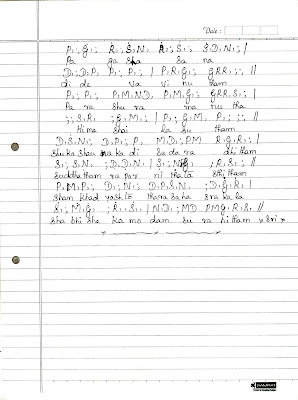 Date :
P, ; G, ; R, ; S, N, R, ; S, ; S, D, N, ; |
Pa ga sha sa na
D, ; D, P, P, ; P, ; | P, R, G, ; GRR, ; , //
di de va vi nu tham
P, ; P, ; , P, M, N, D, P, M, G, ; GRR, S, ; |
Pa ra shu ra ma nu tha
; , S, R, ; G, M, ; | P, ; G, M, P, ; , ; //
Hima shai la su tham
D, S, N, ; D, P, ; P, MD, ; PM R, G, R, ; |
shu ka shau na ka di su da ra dhi tham
S, ; S, N, ; D, D, N, | S, ; N, ; R, S, ; //
suddha tham ra par ni tha ta sthi tham
P, M, P, ; D, ; N, ; D, P, S, N, ; D, G, R, |
sham khad yash to thara sa ha sra ka la
S, ; M, G, ; R, ; S, ; | N, D, ; MD PMG, R, S, //
sha bhi she ka mo dam su ra hi tham x sri x
SAMRAT